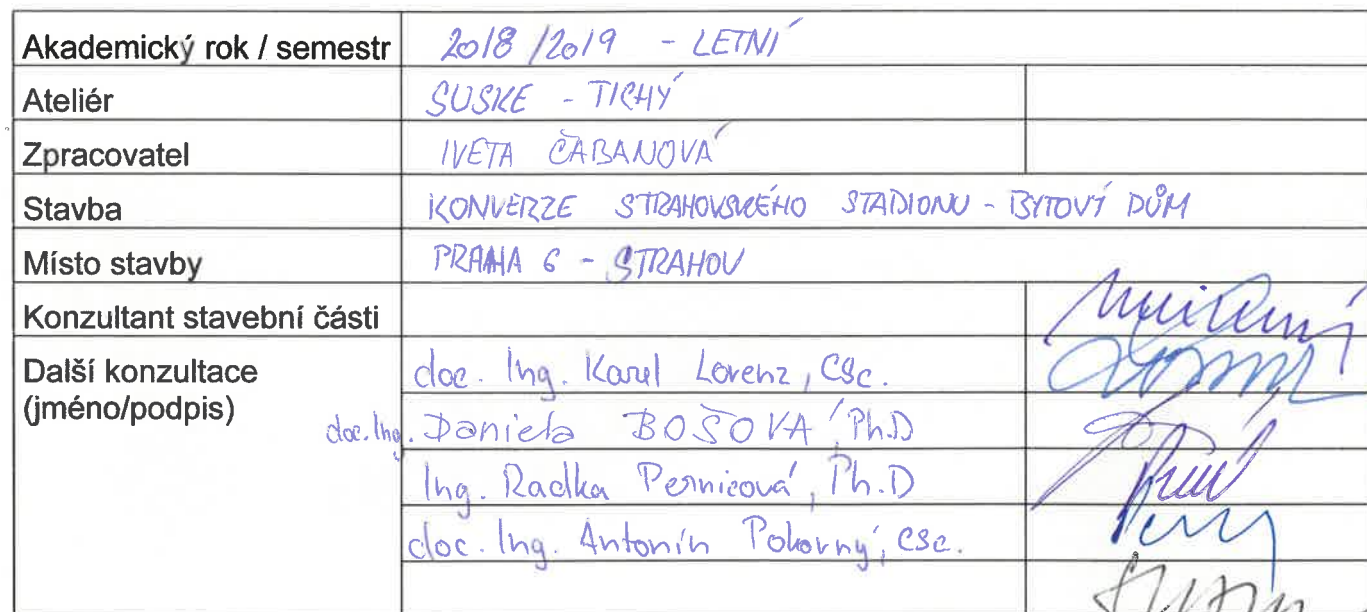 Akademický rok / semestr 2018/2019 - LETNÍ
Ateliér SUSKE - TICHÝ
Zpracovatel IVETA ČABANOVÁ
Stavba KONVERZE STRAHOVSKÉHO STADIONU - BYTOVÝ DŮM
Místo stavby PRAHA 6 - STRAHOV
Konzultant stavební části
Další konzultace doc. Ing. Karel Lorenz, CSc.
(jméno/podpis) doc. Ing. Daniela BOŠOVÁ Ph.D
Ing. Radka Pernicová, Ph.D
doc. Ing. Antonín Pokorný, CSc.